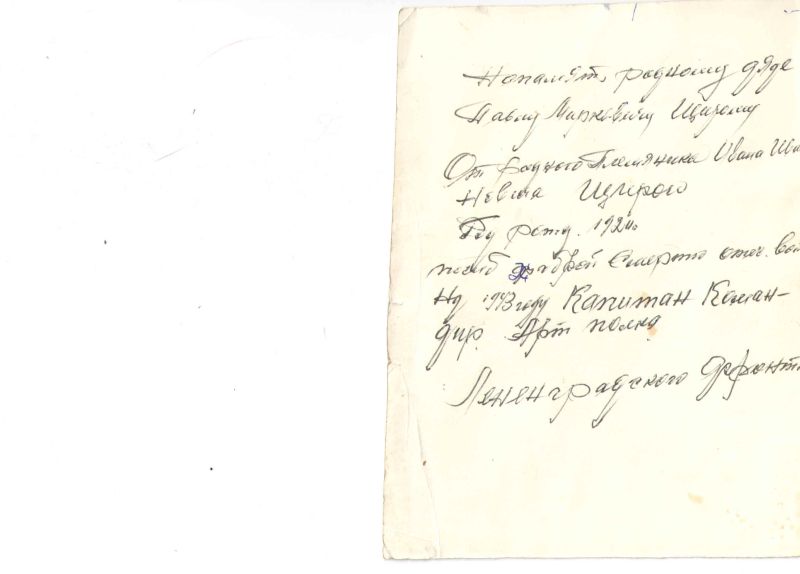 Напамять родному дяде
Павлу Марковичу
От родного Племянника Ивана Ива
Новича
Год рожд. 1924г
погиб храброй Смертю отеч. вой
На 1943 году Капитан Коман-
дир Арт полка
Ленинградского фронта